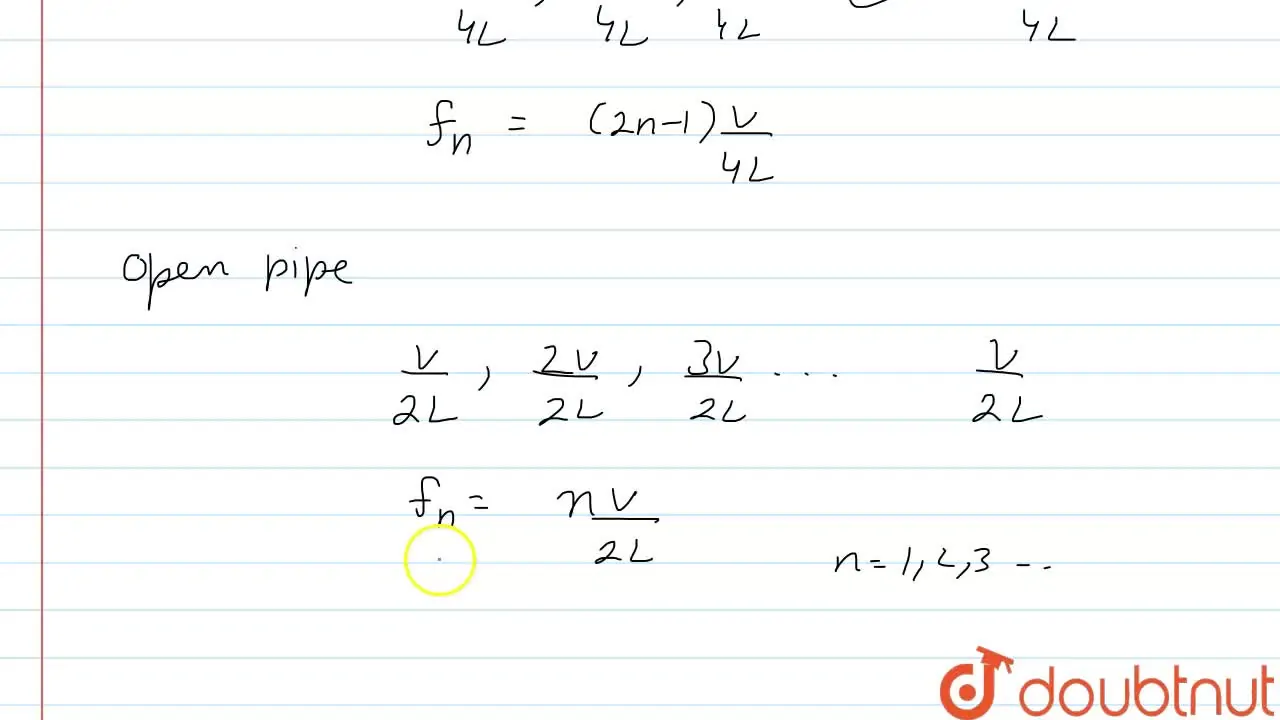 4L 4L 4L 4L
fn = (2n-1) v/4L
Open pipe
v/2L , 2v/2L , 3v/2L ... v/2L
fn = nv/2L
n = 1, 2, 3 - ..
doubtnut